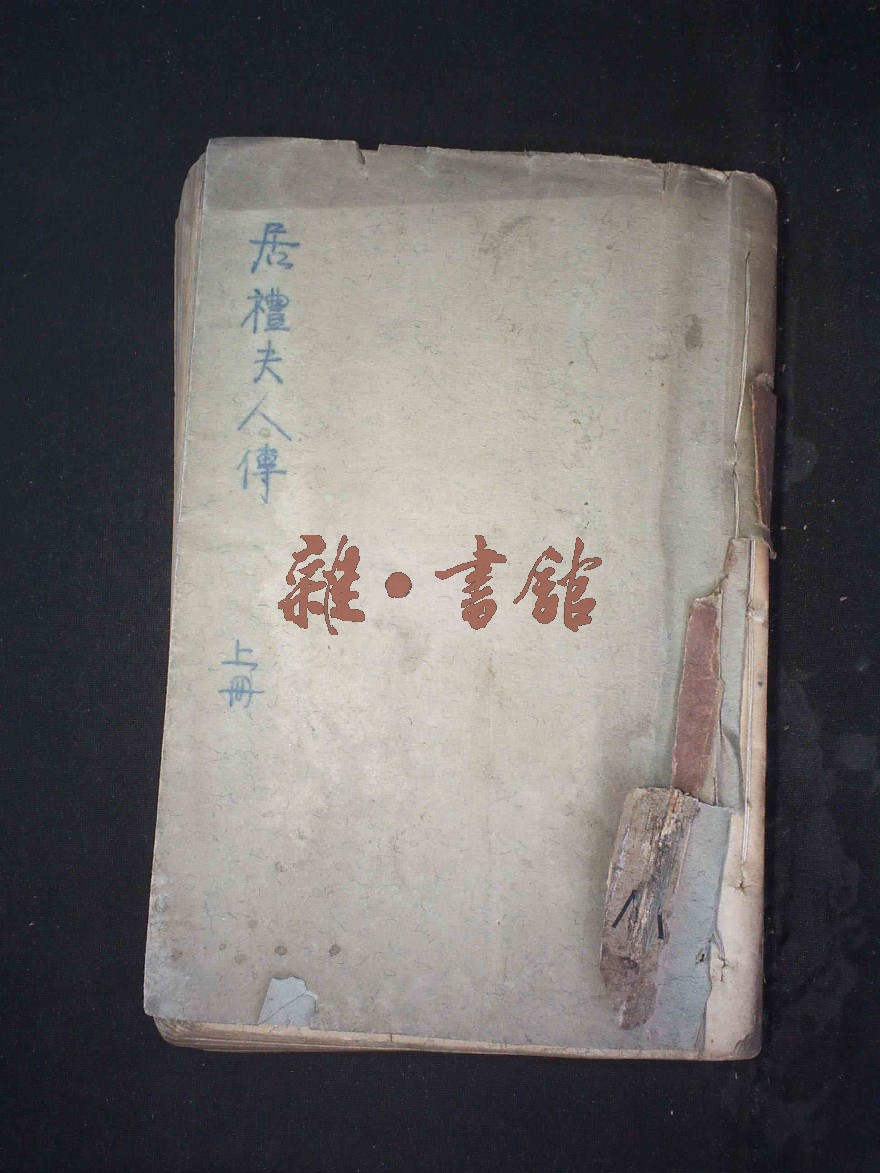 居禮夫人傳
上冊
雜·書館